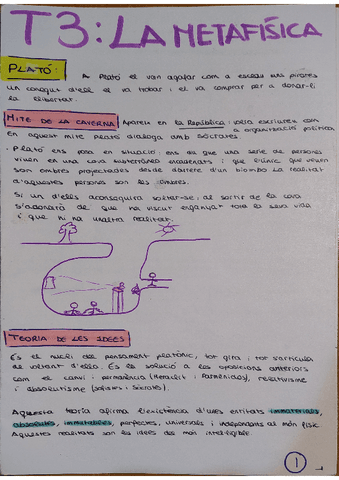 T3: LA METAFÍSICA
PLATÓ:
A Plató el van agafar com a esclau uns pirates
un conegut d'ell el va trobar i el va comprar per a donar-li
la llibertat.
MITE DE LA CAVERNA Apareix en la República:
a organització política
en aquest mite Plató dialoga amb Sócrates
Plató ens posa en situació: ens diu que una serie de persones
viuen en una cova subterrànea encadenats i que l'únic que veuen
son ombres projectades desde darrere d'un biombo La realitat
d'aquestes persones son les ombres.
Si un d'ells aconseguira soltar-se, al sortir de la cova
s'adonarà de que ha viscut enganyat tota la seva vida
i que hi ha unaltra realitat.
TEORIA DE LES IDEES
És el nucli del pensament platònic, tot gira i tot s'articula
al voltant d'ello. És la solució a les oposicions anteriors
com el canvi i permanència (Heràclit i Parmenides), relativisme
i absolutisme (sofistes i Sócrates).
Aquesta teoría afirma l'existència d'unes entitats immaterials,
absolutes, immutables, perfectes, universals i independents al món físic
Aquestes realitats son les idees del mon intel·ligible.
1